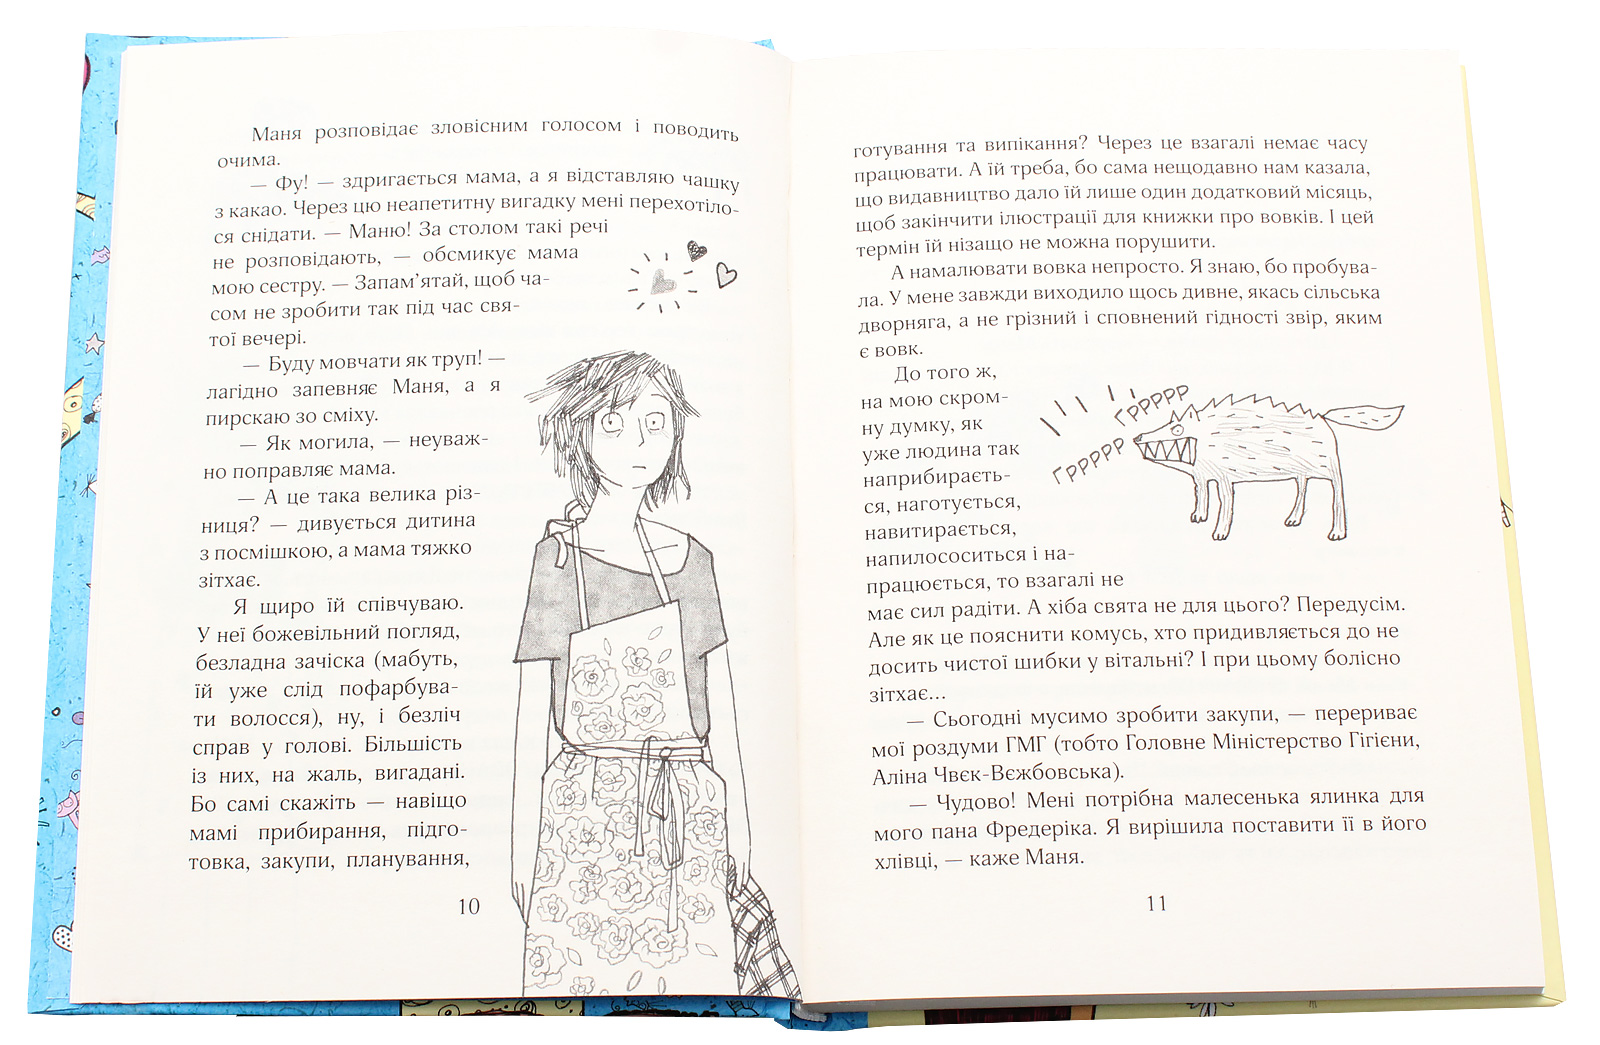 Маня розповідає зловісним голосом і поводить
очима.
— Фу! — здригається мама, а я відставляю чашку
з какао. Через цю неапетитну вигадку мені перехотіло-
ся снідати. — Маню! За столом такі речі
не розповідають, — обсмикує мама
мою сестру. — Запам’ятай, щоб ча-
сом не зробити так під час свя-
тої вечері.
— Буду мовчати як труп! —
лагідно запевняє Маня, а я
пирскаю зо сміху.
— Як могила, — неуваж-
но поправляє мама.
— А це така велика різ-
ниця? — дивується дитина
з посмішкою, а мама тяжко
зітхає.
Я щиро їй співчуваю.
У неї божевільний погляд,
безладна зачіска (мабуть,
їй уже слід пофарбува-
ти волосся), ну, і безліч
справ у голові. Більшість
із них, на жаль, вигадані.
Бо самі скажіть — навіщо
мамі прибирання, підго-
товка, закупи, планування,
10
готування та випікання? Через це взагалі немає часу
працювати. А їй треба, бо сама нещодавно нам казала,
що видавництво дало їй лише один додатковий місяць,
щоб закінчити ілюстрації для книжки про вовків. І цей
термін їй нізащо не можна порушити.
А намалювати вовка непросто. Я знаю, бо пробува-
ла. У мене завжди виходило щось дивне, якась сільська
дворняга, а не грізний і сповнений гідності звір, яким
є вовк.
До того ж,
на мою скром-
ну думку, як
уже людина так
наприбираєть-
ся, наготується,
навитирається,
напилососиться і на-
працюється, то взагалі не
має сил радіти. А хіба свята не для цього? Передусім.
Але як це пояснити комусь, хто придивляється до не
досить чистої шибки у вітальні? І при цьому болісно
зітхає...
— Сьогодні мусимо зробити закупи, — перериває
мої роздуми ГМГ (тобто Головне Міністерство Гігієни,
Аліна Чвєк-Вєжбовська).
— Чудово! Мені потрібна малесенька ялинка для
мого пана Фредеріка. Я вирішила поставити її в його
хлівці, — каже Маня.
Ґррррр
Ґррррр
11